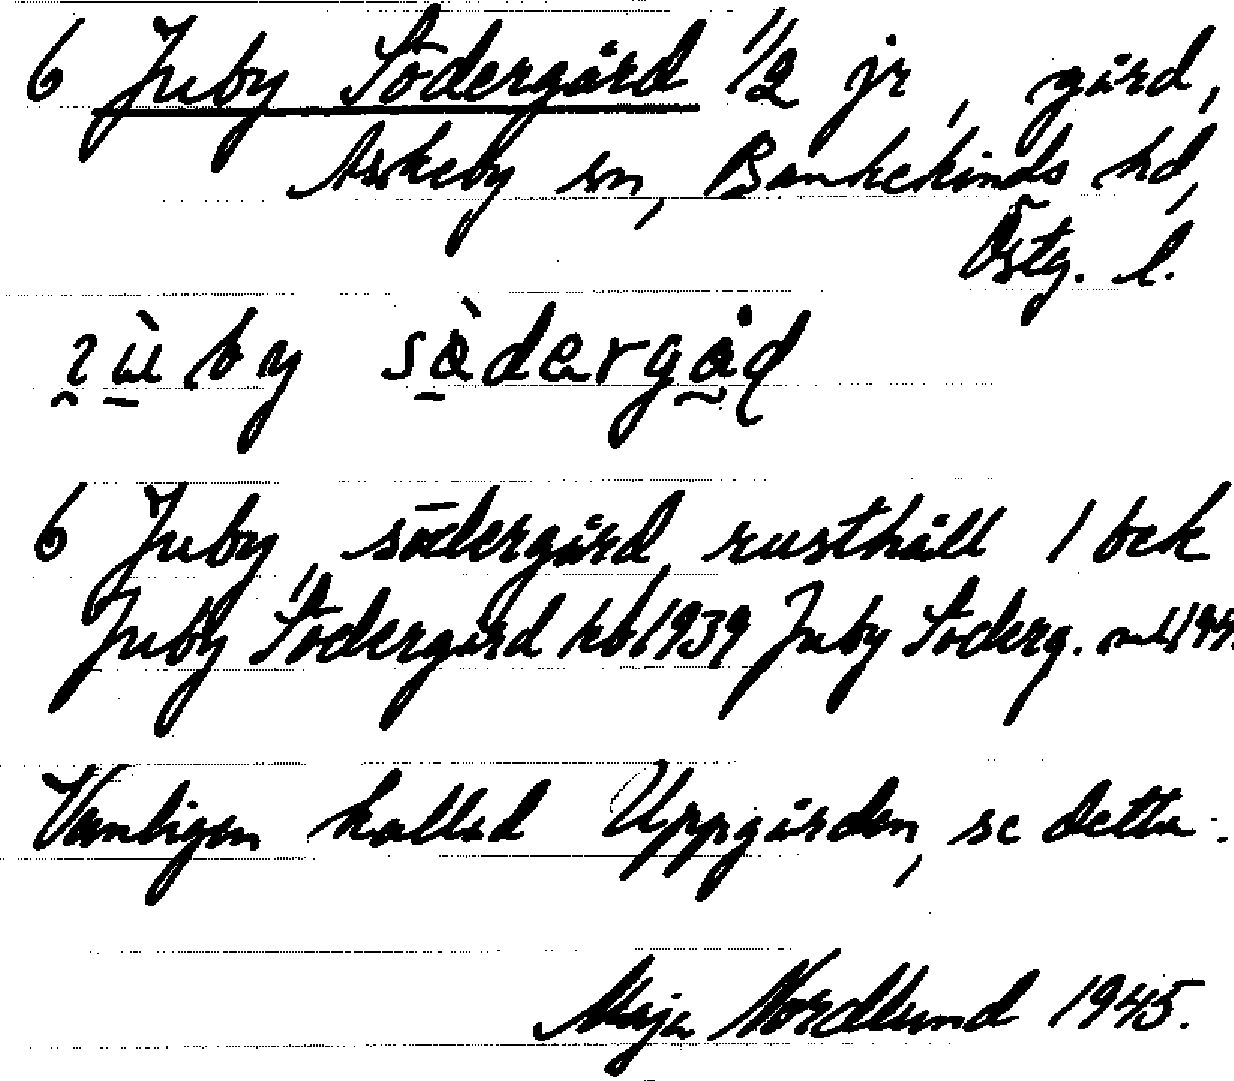 6 Juby Södergård 1/2 jr, gård,
Askeby sn, Bankekinds hd,
Östg. l.
södergåd
6 Juby, södergård, rusthåll 1 bek
Juby Södergård hb 1939 Juby Söderg.
Vanligen kallad Uppgården, se detta.
Maja Nordlund 1945.